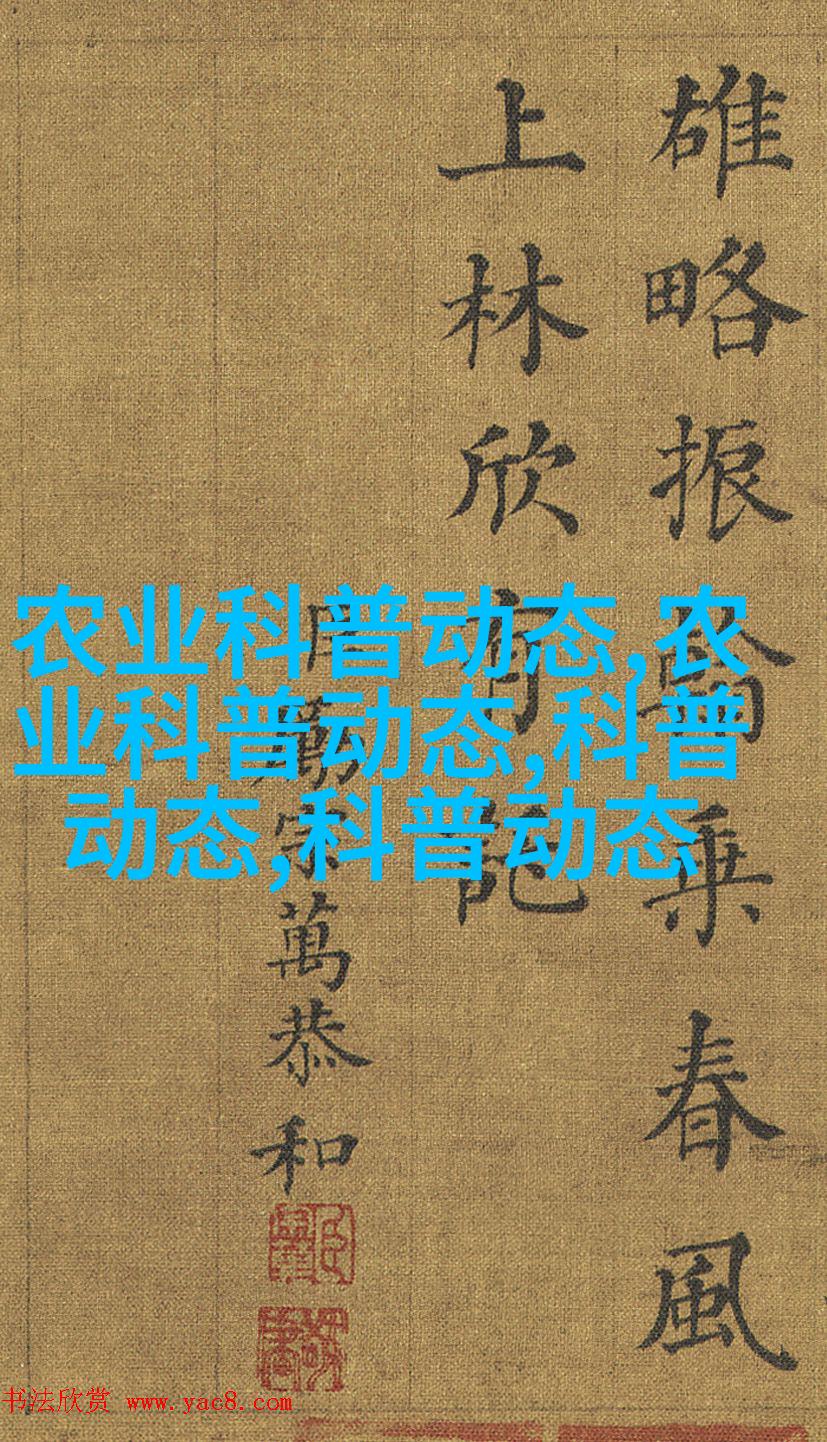 雄略振乘春風
上林欣
宗萬恭和
农业科普动态,农
业科普动态,科普
动态,科普动态
书法欣赏 www.yac8.com